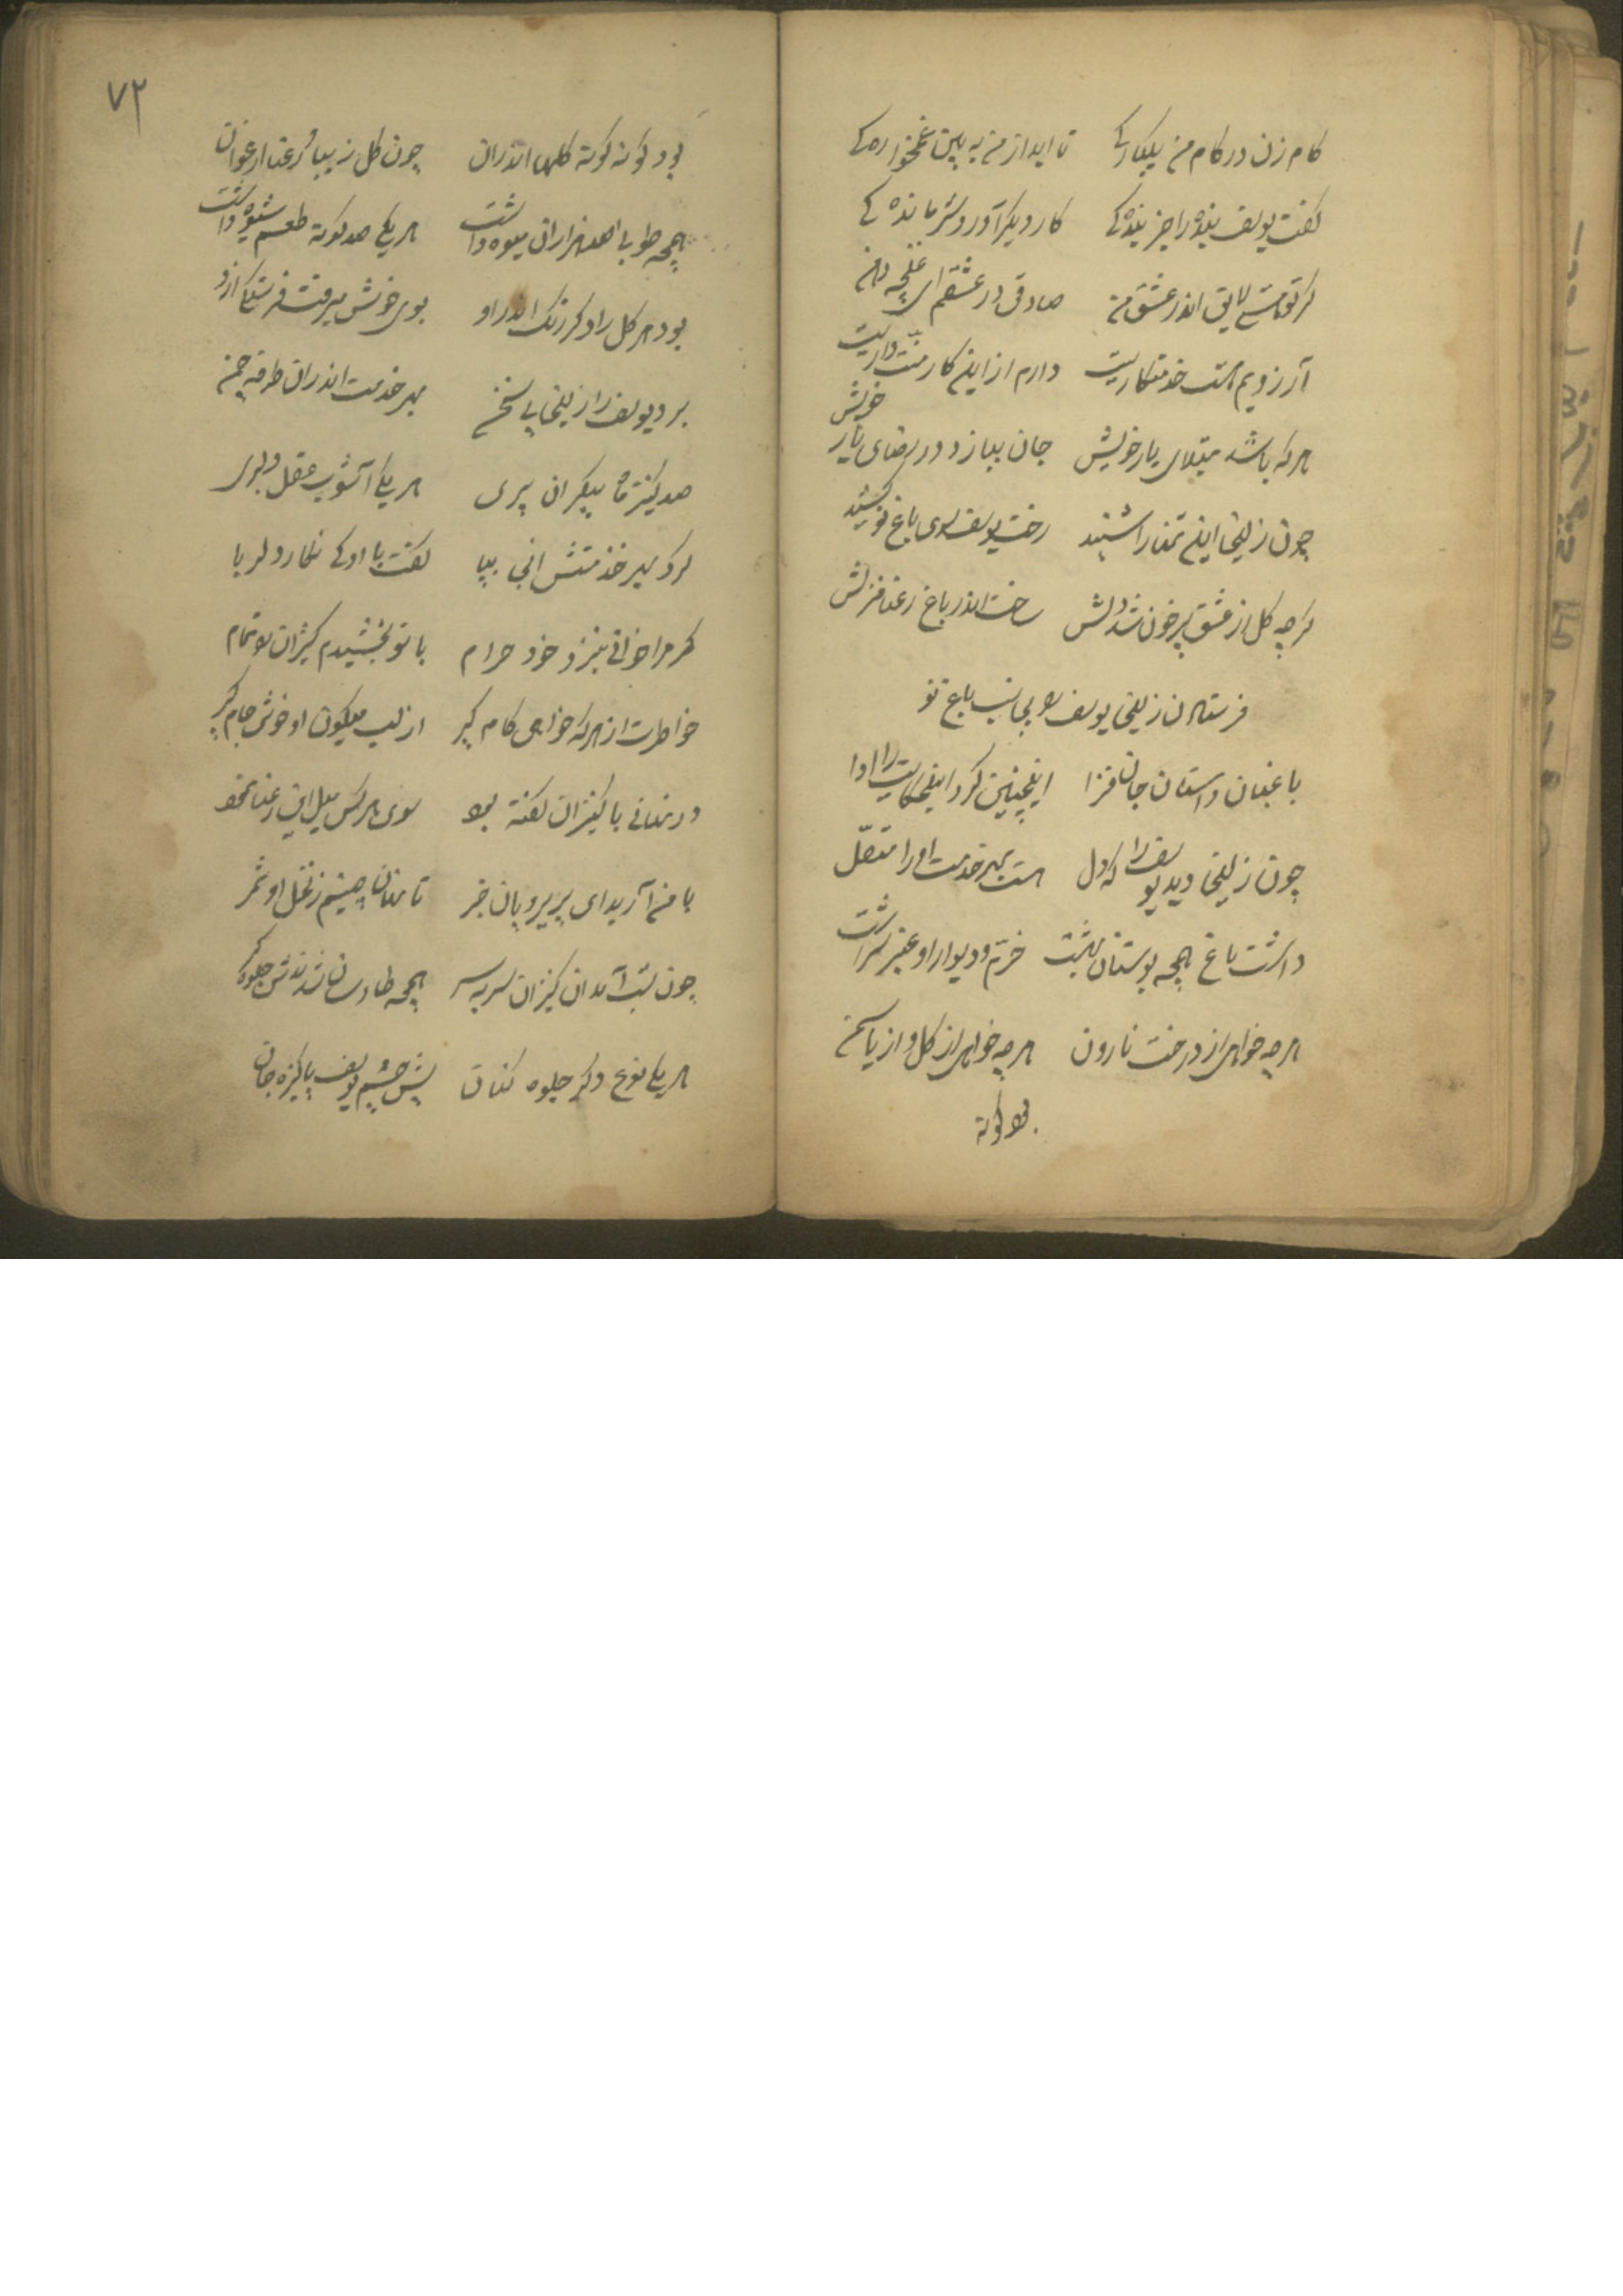 کام زن در کام من یکبارکی تا ابد از من به بین غمخوارهکی
کفت یوسف بنده را جز بندهکی کار دیکر آورد شرماندهکی
کر تو هستی لایق اندر عشق من صادقی در عشقم ای غنچه دهن
آرزویم هست خدمتکاریت دارم از این کار منت داریت
هرکه باشد مبتلای یار خویش جان ببازد در رضای یار خویش
چون زلیخا این تمنا را شنید رخت یوسف سوی باغ نو کشید
کرچه کل از عشق پرخون شد دلش ساخت اندر باغ رعنا منزلش
فرستادن زلیخا یوسف را باغ نو
باغبان داستان جان فزا اینچنین کرد این حکایت را ادا
چون زلیخا دید یوسف را که دل هست بهر خدمت او را متصل
داشت باغ همچه بوستان بهشت خرم و دیوار او عنبر سرشت
هرچه خواهی از درخت نارون هرچه خواهی از کل و از یاسمن
بود کونه
۷۲
بود کونه کونه کلها اندران چون کل زیبا و رعنا ارغوان
همچه طوبی صد هزاران میوه داشت هر یکی صد کونه طعم شیوه داشت
بود هر کل را دکر رنک اندر او بوی خوش میرفت فرسنکی ازو
برد یوسف را زلیخا بی سخن بهر خدمت اندران طرفه چمن
صد کنیز ماه پیکران پری هر یکی آشوب عقل دلبری
کرد بهر خدمتش انجا بپا کفت با او کی نکار دلربا
کر مرا خوانی بنزد خود حرام با تو بخشیدم کنیزان را تمام
خاطرت از هرکه خواهی کام کیر از لب میکون او خوش جام کیر
در نهانی با کنیزان کفته بود سوی هرکس میل این رعنا نمود
با من آرید ای پریرویان خبر تا نهان چینم ز نخل او ثمر
چون شب آمد ان کنیزان سربسر همچه طاوسان شدندش جلوهکر
هر یکی نوع دکر جلوه کنان پیش چشم یوسف پاکیزه جان